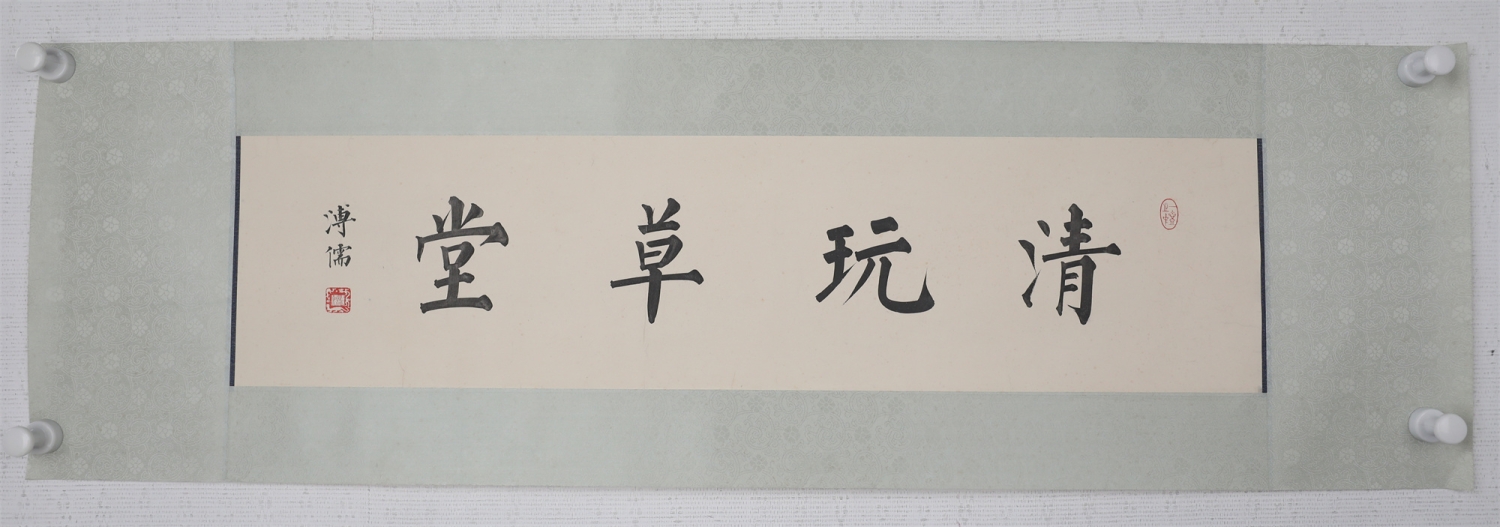 清玩草堂
溥儒